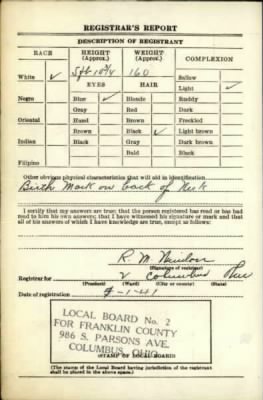 REGISTRAR'S REPORT
DESCRIPTION OF REGISTRANT
RACE HEIGHT (Approx.) WEIGHT (Approx.) COMPLEXION
White ✓ 160 Sallow
EYES HAIR Light ✓
Negro Blue ✓ Blonde Ruddy
Gray Red Dark
Oriental Hazel Brown Freckled
Brown Black ✓ Light brown
Indian Black Gray Dark brown
Bald Black
Filipino
Other obvious physical characteristics that will aid in identification
Birth Mark on back of Neck
I certify that my answers are true; that the person registered has read or has had
read to him his own answers; that I have witnessed his signature or mark and that
all of his answers of which I have knowledge are true, except as follows:
R. M.
(Signature of registrar)
Registrar for 2 Columbus
(Precinct) (Ward) (City or county) (State)
Date of registration -1-41
LOCAL BOARD No. 2
FOR FRANKLIN COUNTY
986 S. PARSONS AVE.
COLUMBUS, OHIO
(STAMP OF LOCAL BOARD)
(The stamp of the Local Board having jurisdiction of the registrant
shall be placed in the above space.)